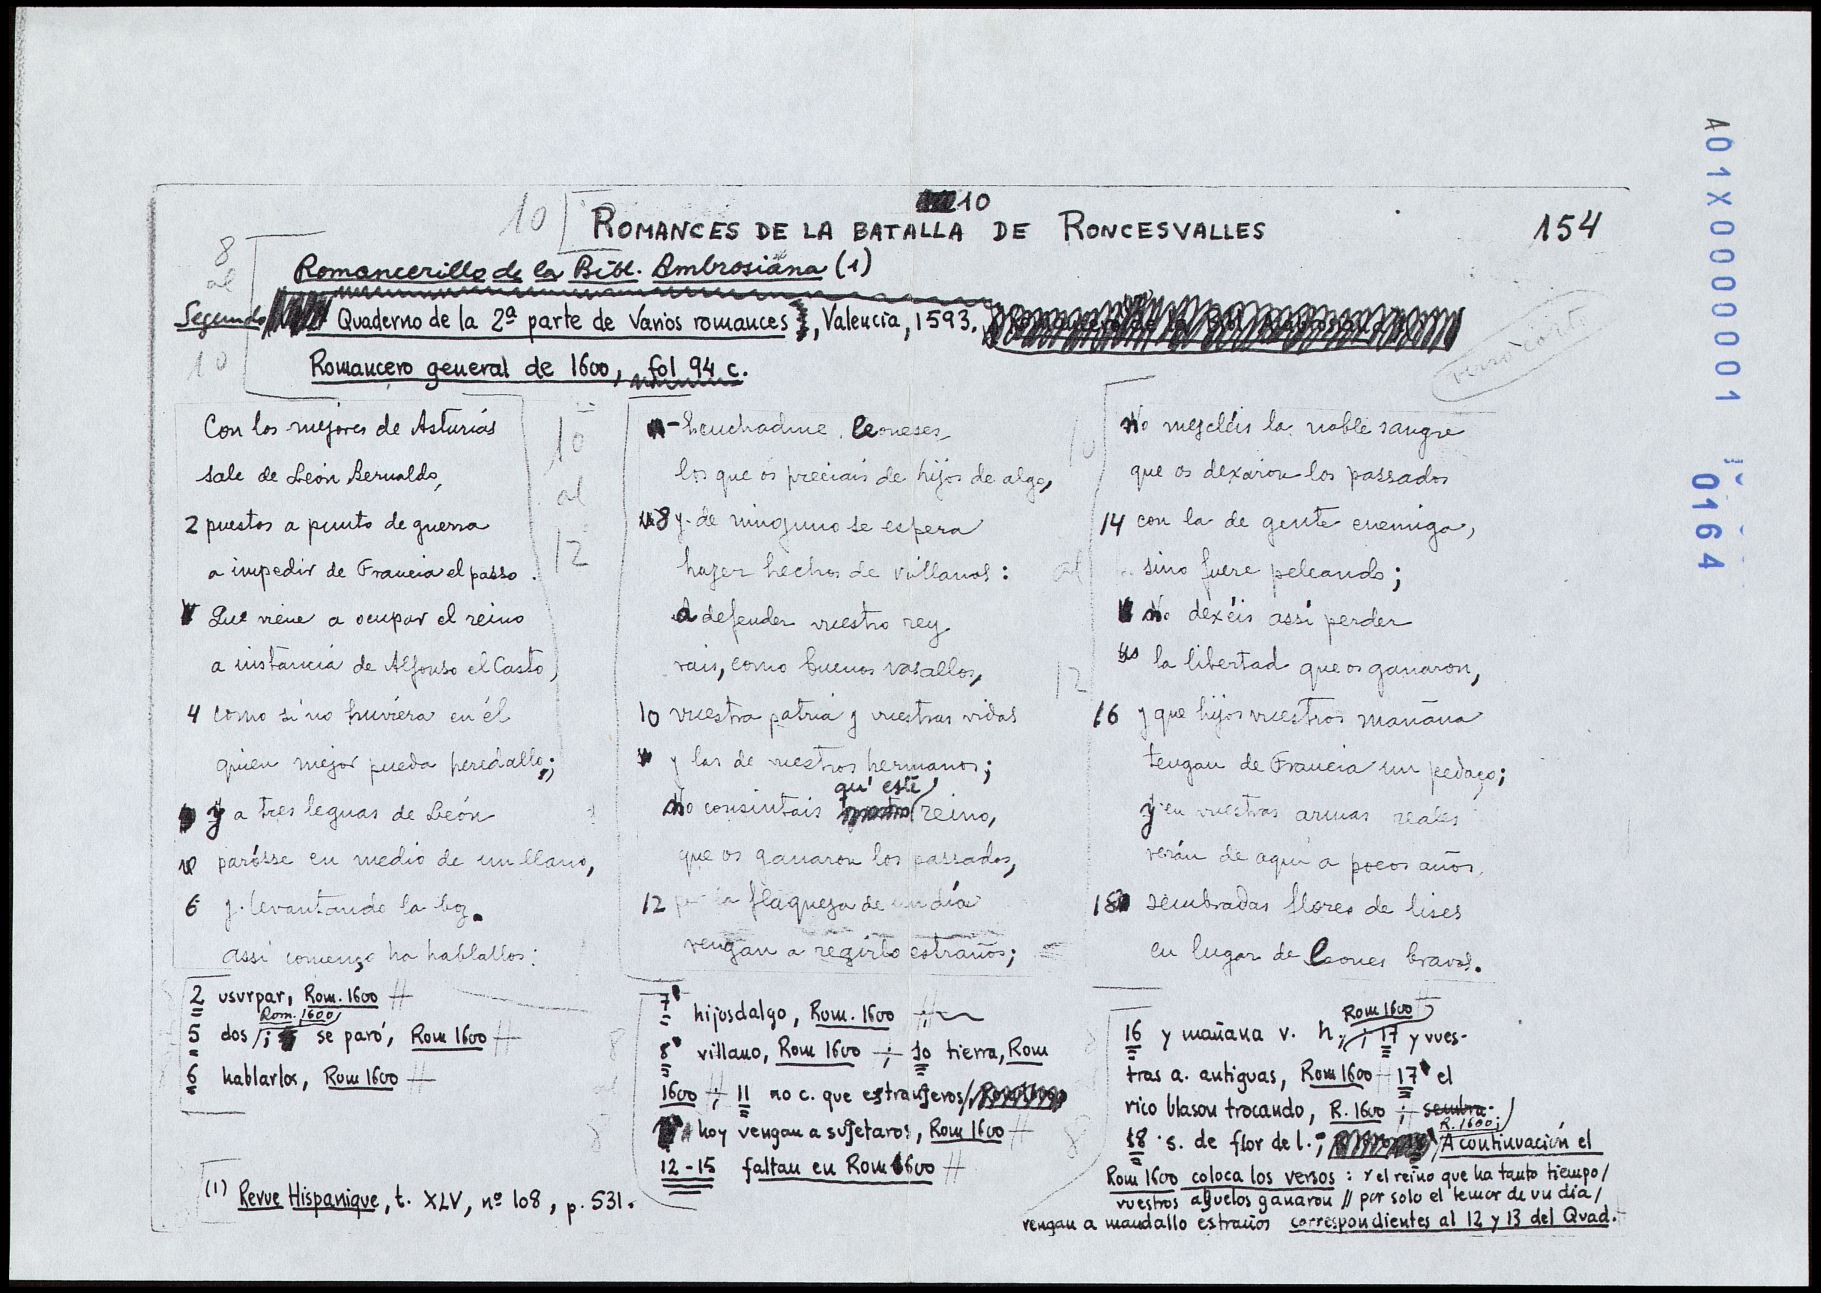 10
10
ROMANCES DE LA BATALLA DE RONCESVALLES
154
8
al
10
Romancerillo de la Bibl. Ambrosiana (1)
Segundo Quaderno de la 2ª parte de Varios romances, Valencia, 1593.
Romancero general de 1600, fol 94 c.
verso corto
Con los mejores de Asturias
sale de León Bernaldo,
2 puestos a punto de guerra
a impedir de Francia el passo.
Que viene a ocupar el reino
a instancia de Alfonso el Casto,
4 como si no huviera en él
quien mejor pueda heredallo;
y a tres leguas de León
parósse en medio de un llano,
6 y levantando la boz
assí començo ha hablallos:
10
al
12
-Escuchadme, leoneses,
los que os preciais de hijos de algo,
8 y de ninguno se espera
hazer hechos de villanos:
a defender vuestro rey
vais, como buenos vasallos,
10 vuestra patria y vuestras vidas
y las de vuestros hermanos;
qu' este
No consintais reino,
que os ganaron los passados,
12 por la flaqueza de un día
vengan a regirlo estraños;
10
al
12
No mezcléis la noble sangre
que os dexaron los passados
14 con la de gente enemiga,
sino fuere peleando;
No dexéis assí perder
la libertad que os ganaron,
16 y que hijos vuestros mañana
tengan de Francia un pedaço;
y en vuestras armas reales
verán de aquí a pocos años
18 sembradas flores de lises
en lugar de leones bravos.
2 usurpar, Rom. 1600
Rom. 1600
5 dos /; se paró, Rom 1600
6 hablarlos, Rom 1600
7 hijosdalgo, Rom. 1600
8 villano, Rom 1600 ; 10 tierra, Rom
1600 ; 11 no c. que estranjeros/
hoy vengan a sujetaros, Rom 1600
12-15 faltan en Rom 1600
Rom 1600
16 y mañana v. h.; 17 y vues-
tras a. antiguas, Rom 1600 17 el
rico blason trocando, R. 1600 ; sembra-
R. 1600;
18 s. de flor de l.; A continuación el
Rom 1600 coloca los versos : y el reino que ha tanto tiempo/
vuestros abuelos ganaron // por solo el temor de un día/
vengan a mandallo estraños correspondientes al 12 y 13 del Quad.
(1) Revue Hispanique, t. XLV, nº 108, p. 531.
A01X0000001
0164